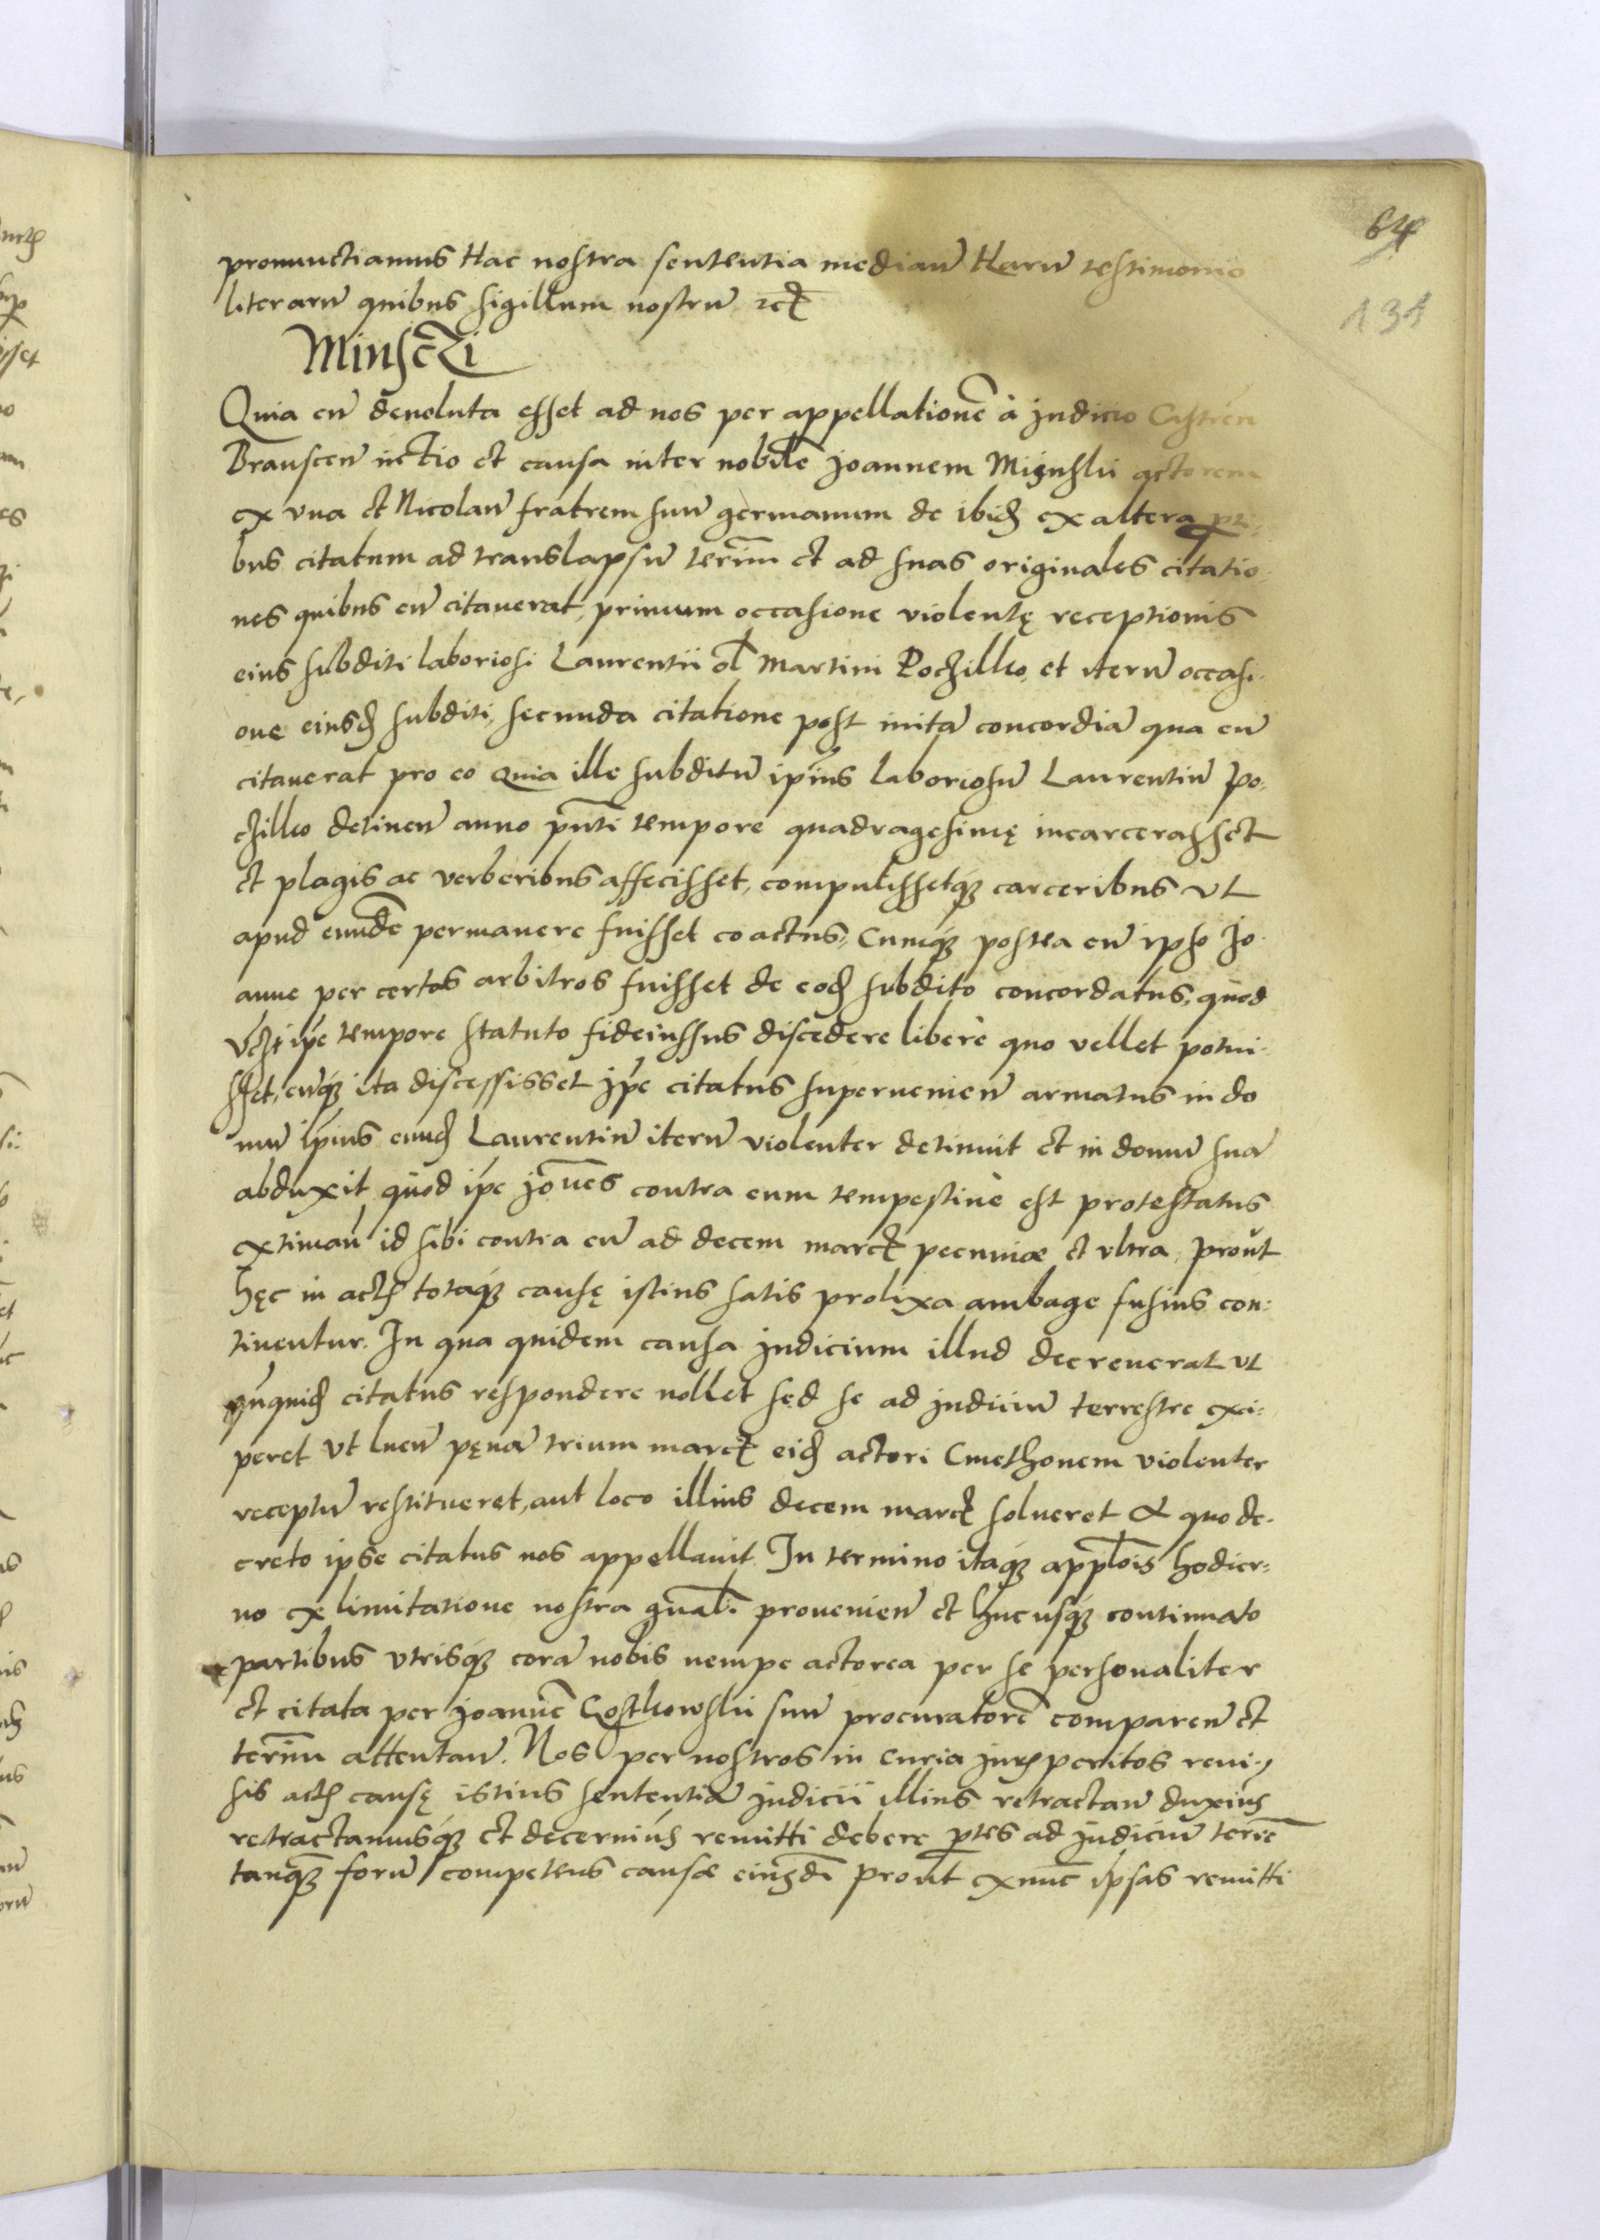 64
134
pronunctiamus Hac nostra sententia median̄ Harū testimonio
literarū quibus sigillum nostrū etc
Minsczi
Quia cū deuoluta esset ad nos per appellationē à judicio Castren̄
Branscen̄ actio et causa inter nobilē joannem Mijnskii actorem
ex vna et Nicolaū fratrem suū germanum de ibid ex altera par
bus citatum ad translapsū termīn et ad suas originales citatio
nes quibus eū citauerat, primum occasione violentę receptionis
eius subditi laboriosi Laurentii ol Martini Poczilko, et iterū occasi
one eiusd subditi, secunda citatione post initā concordiā qua eū
citauerat pro eo quia ille subditū ip̄ius laboriosū Laurentiū Po
czilko detinen̄ anno pn̄ti tempore quadragesimę incarcerasset
et plagis ac verberibus affecisset, compulissetq́ue carceribus vt
apud eundē permanere fuisset coactus, Cumq́ue postea cū ipso Jo
anne per certos arbitros fuisset de eod subdito concordatus, quod
ip̄e tempore statuto fideiussus discedere liberè quo vellet potui
sset, cūq́ue ita discessisset ip̄e citatus superuenien̄ armatus in do
mū ip̄ius eund Laurentiū iterū violenter detinuit et in domū suā
abduxit quod ip̄e joānes contra eum tempestiuè est protestatus
extiman̄ id sibi contra eū ad decem marcz pecuniæ et vltra, prout
hęc in actis totaq́ue causę istius satis prolixa ambage fusius con
tinentur. In qua quidem causa judicium illud decreuerat vt
exquid citatus respondere nollet sed se ad judiciū terrestre exci
peret vt luen̄ pęnā trium marcz eid actori Cmethonem violenter
receptū restitueret, aut loco illius decem marcz solueret A quo de
creto ipse citatus nos appellauit. In termino itaq́ue appl̄ois hodier
no ex limitatione nostra gn̄ali prouenien̄ et hucusq́ue continuato
partibus vtrisq́ue corā nobis nempe actorea per se personaliter
et citata per joannē Gostkowskii suū procuratorē comparen̄ et
termīn attentan̄. Nos per nostros in curia juris peritos reui
sis actis causę istius sententiā judicii illius retractan̄ duximus
retractamusq́ue et decernimus remitti debere p̄tes ad judiciū terrē
tanq́uam forū competens causæ eiusdē prout exnūc ipsas remitti